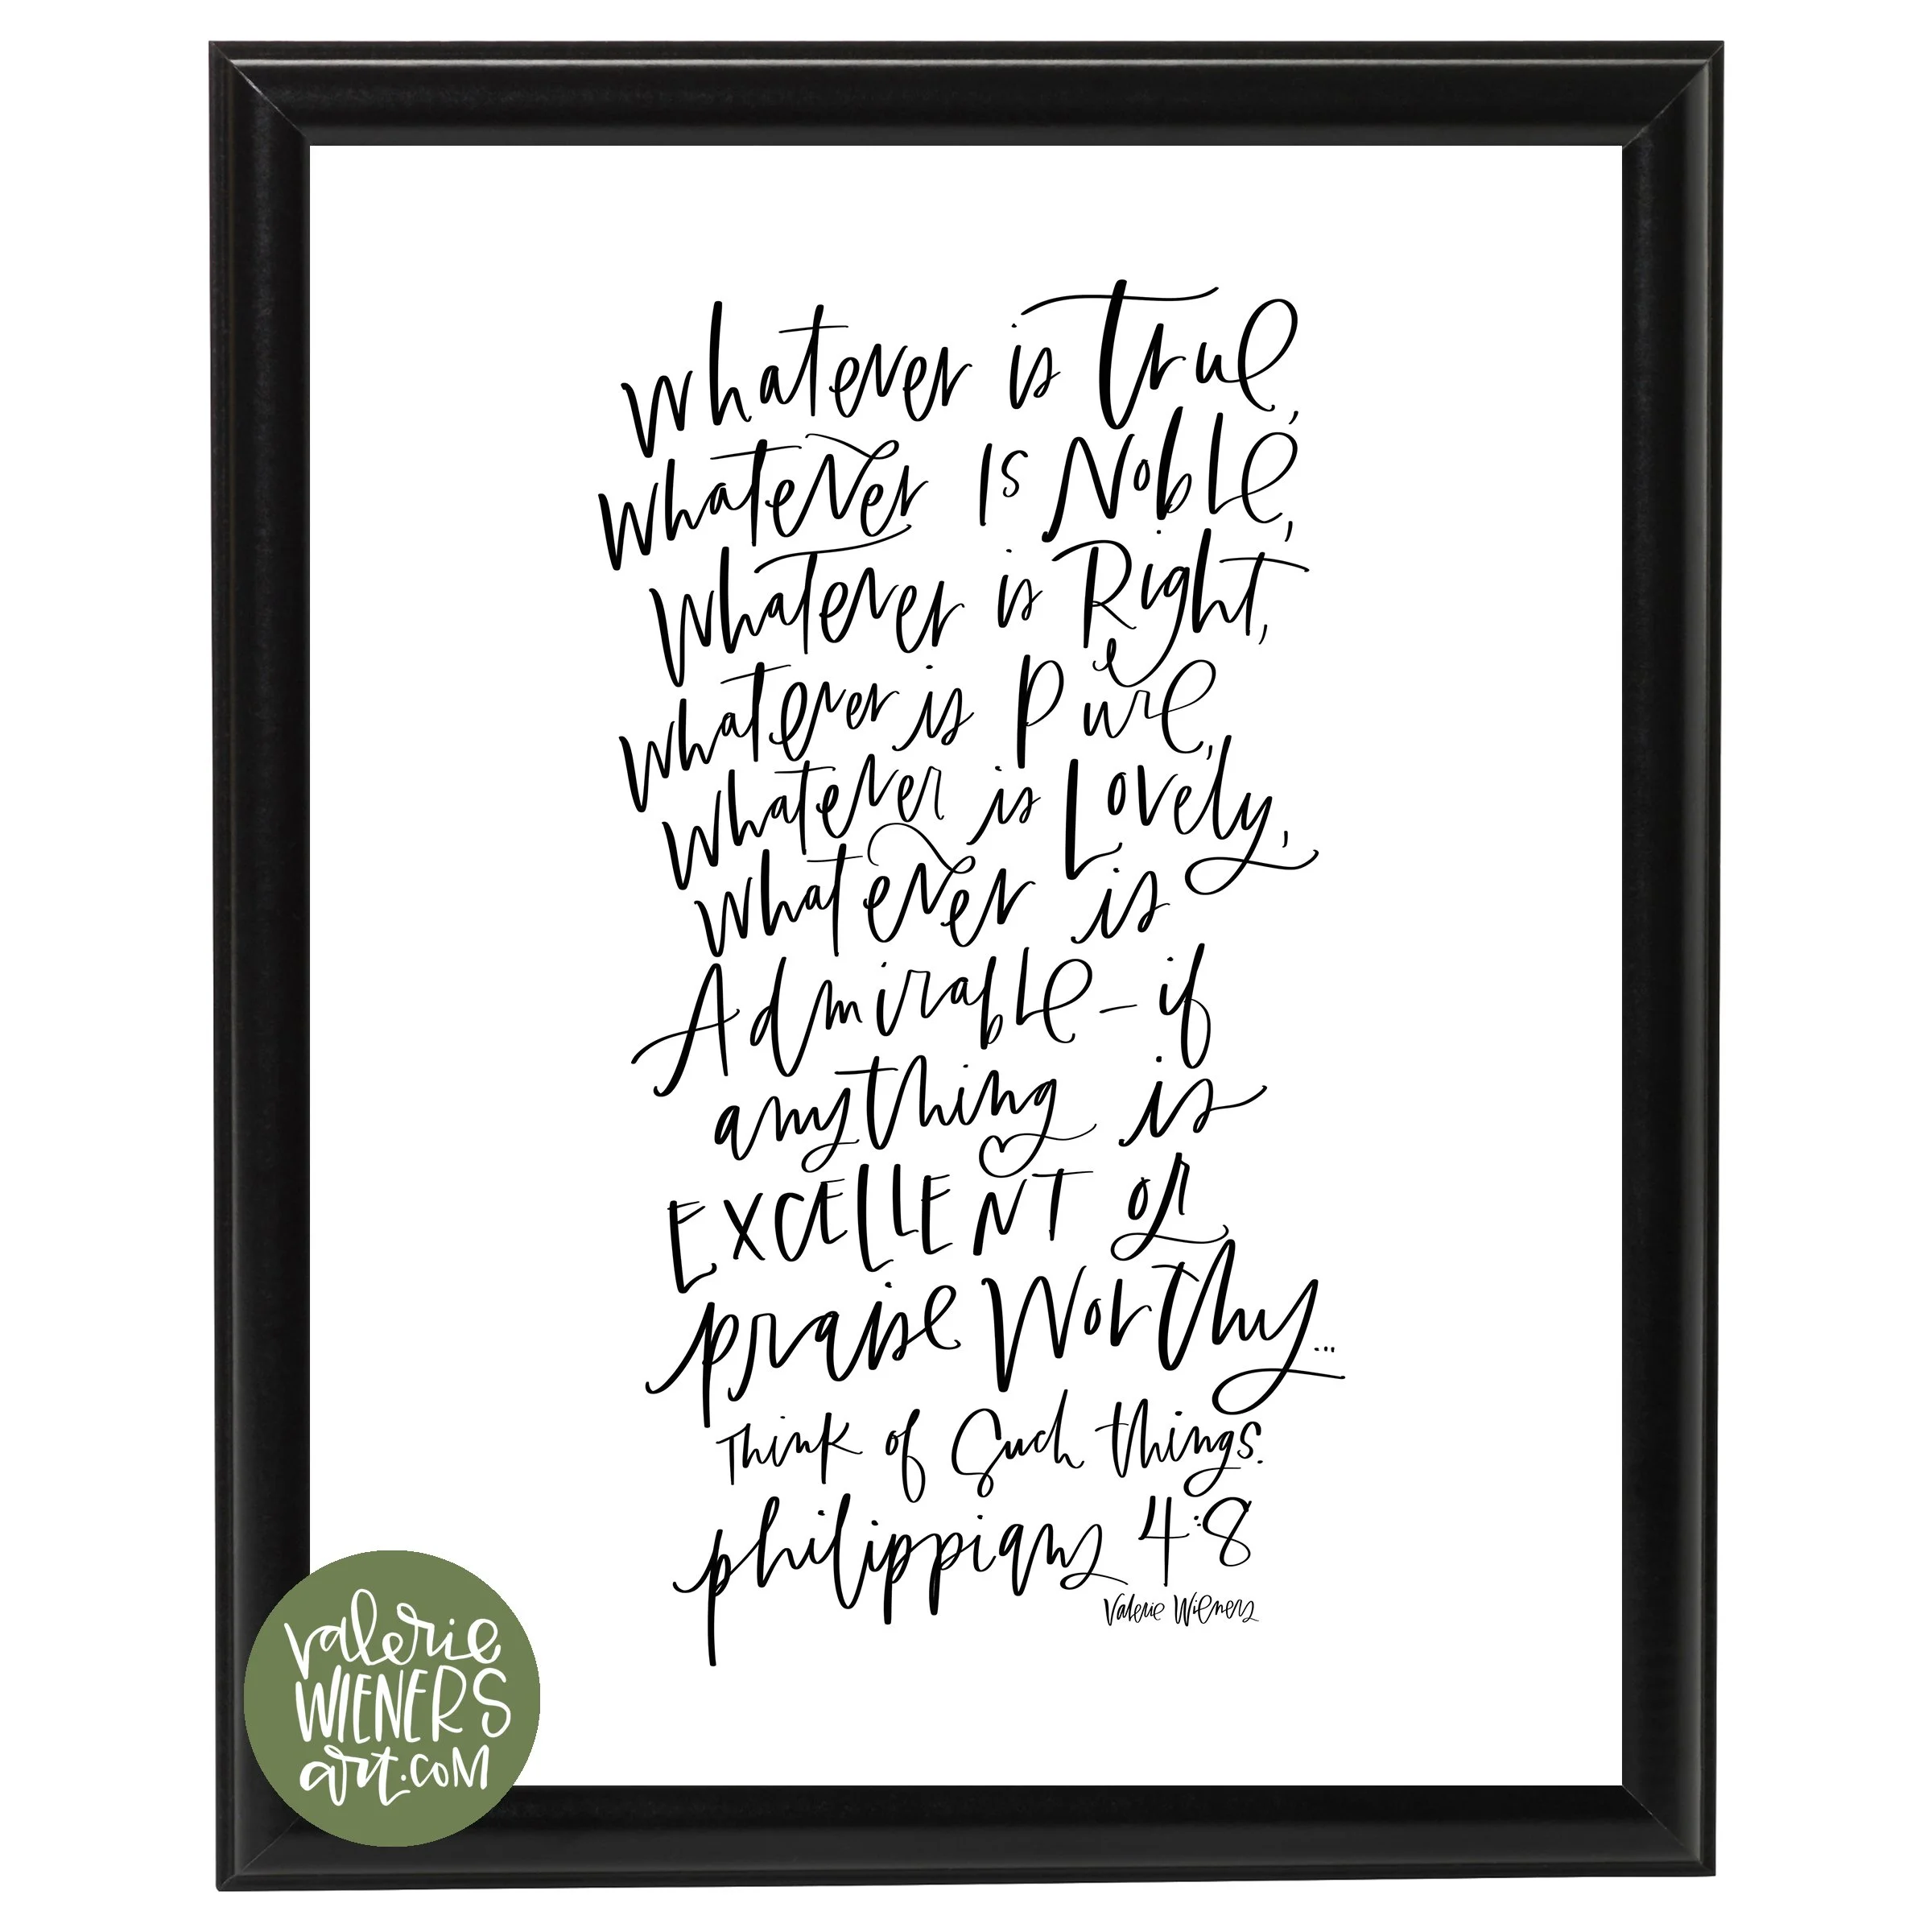 whatever is True,
whatever Is Noble,
whatever is Right,
whatever is Pure,
whatever is Lovely,
whatever is
Admirable - if
anything is
EXCELLENT or
praise Worthy...
Think of Such things.
philippians 4:8
Valerie Wieners
valerie
WIENERS
art.com